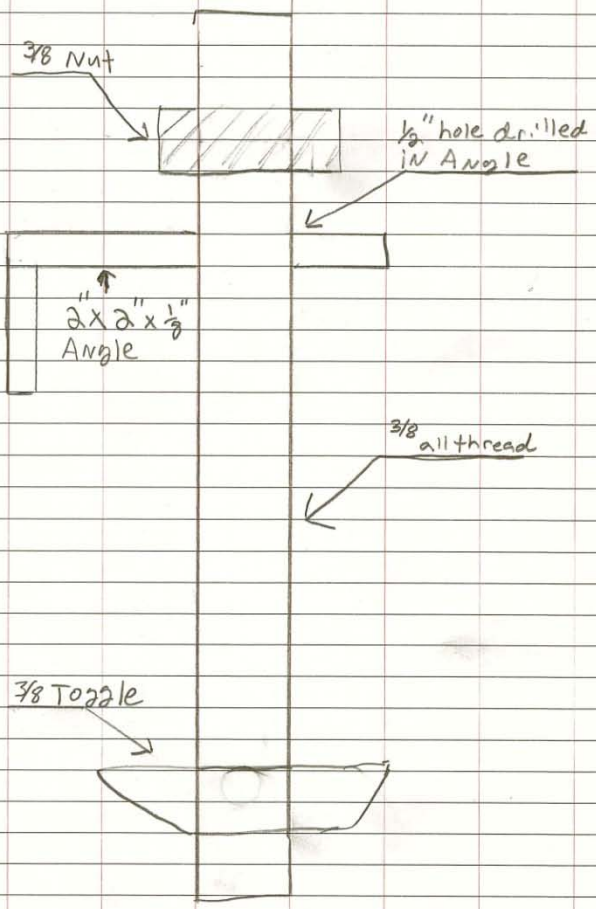 3/8 Nut
1/2" hole drilled
in Angle
2" x 2" x 1/8"
Angle
3/8 all thread
3/8 Toggle